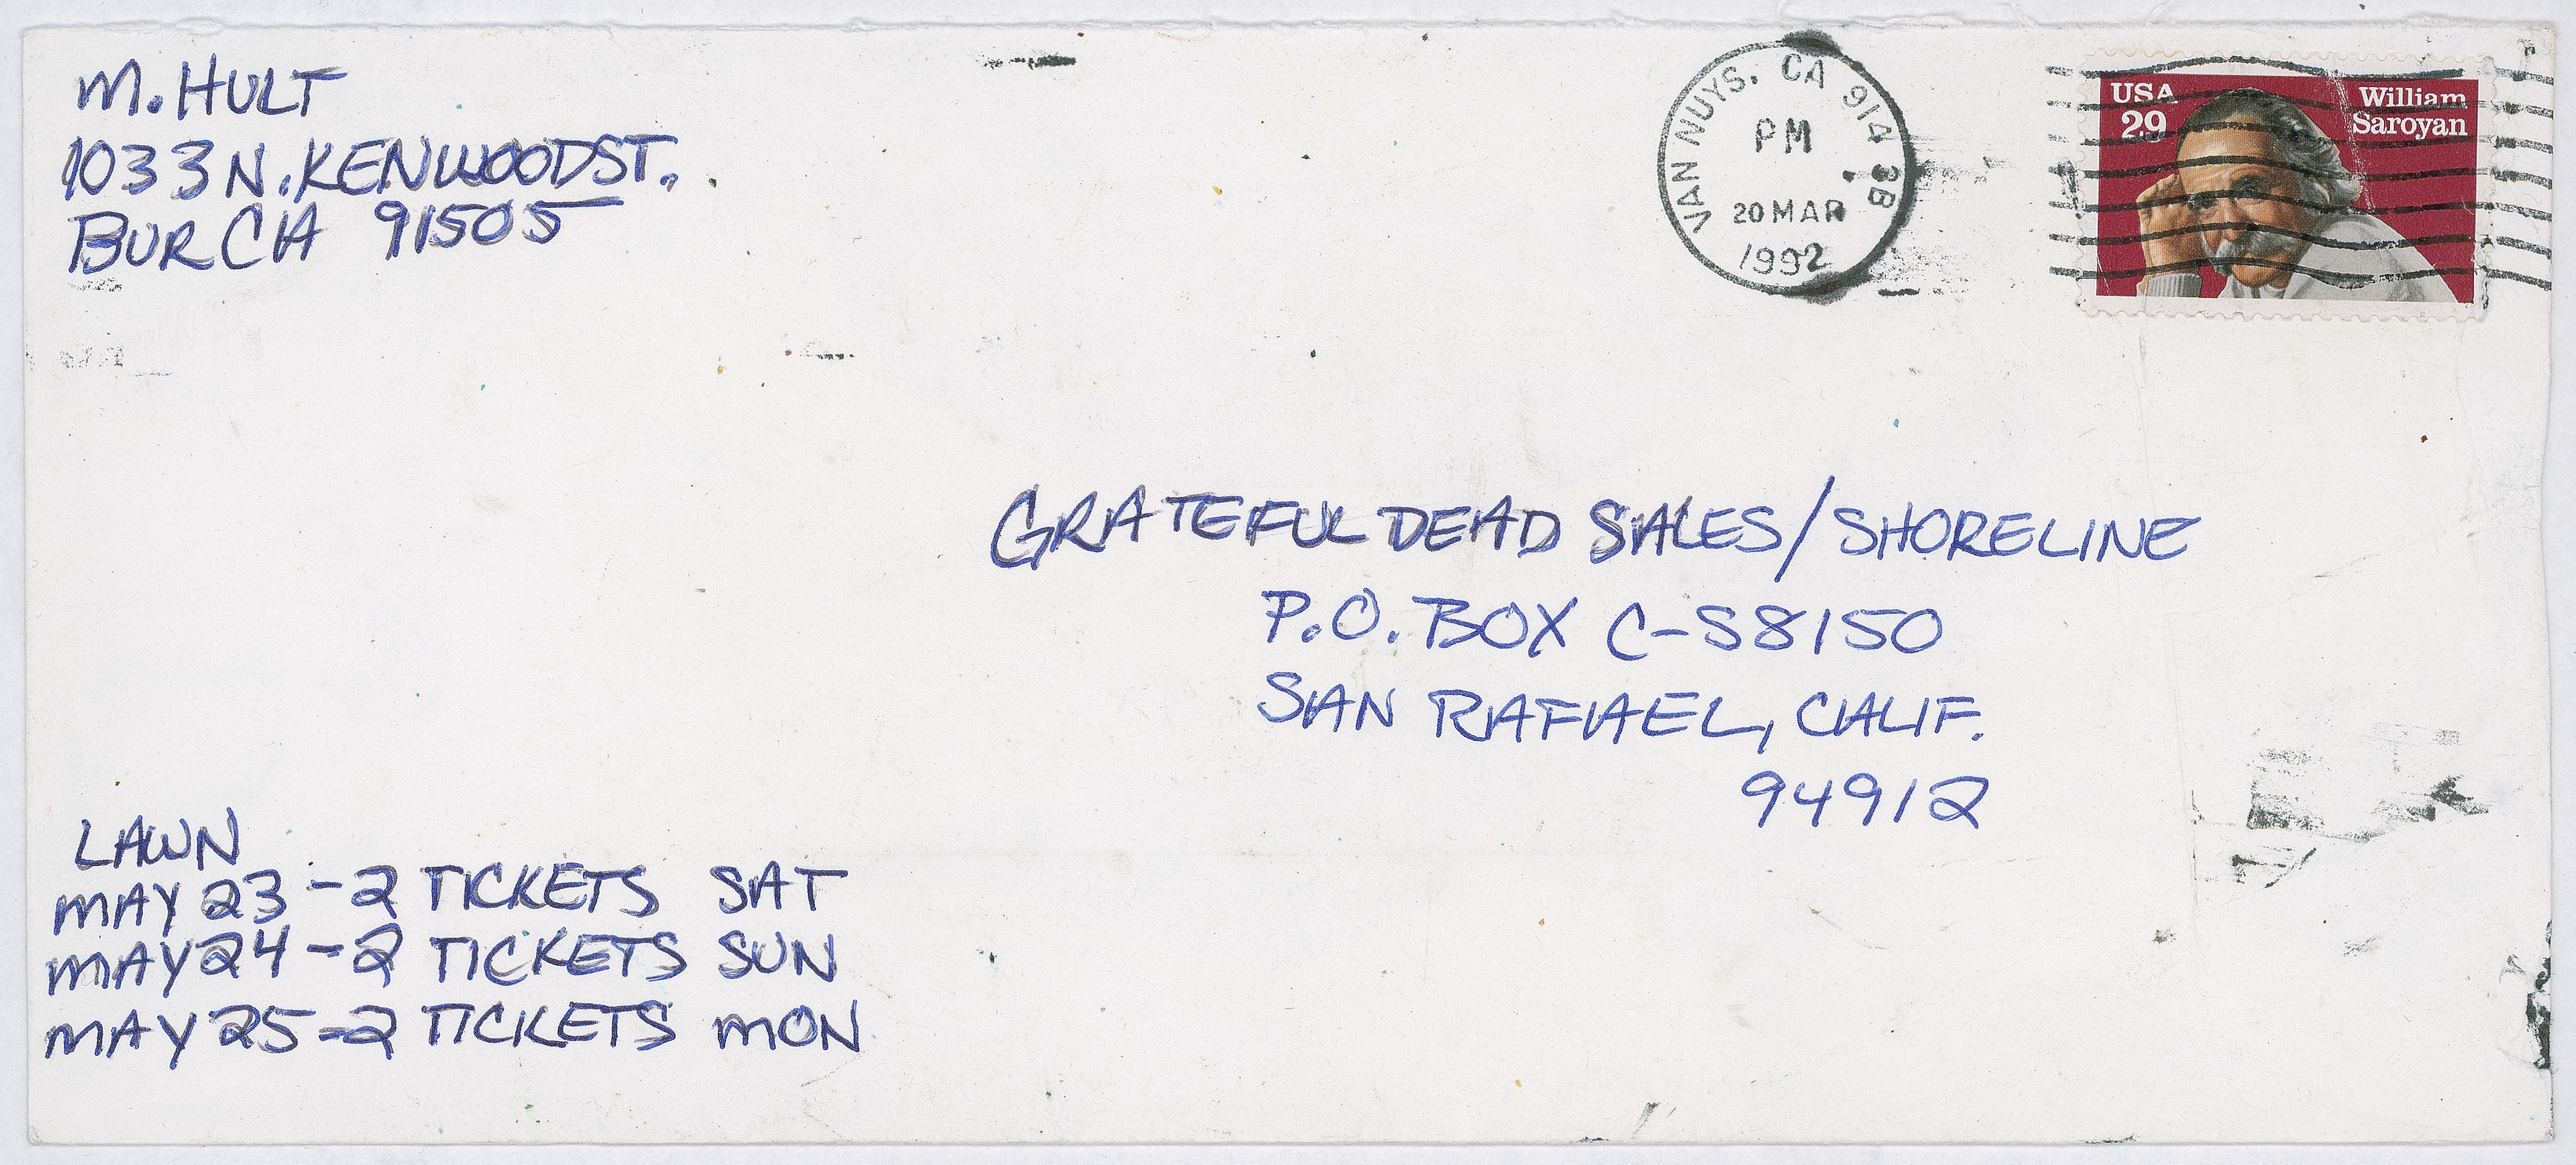 M. HULT
1033 N. KENWOOD ST.
BUR CA 91505
VAN NUYS, CA 914 3B
PM
20 MAR
1992
USA
29
William
Saroyan
GRATEFUL DEAD SALES/SHORELINE
P.O. BOX C-S8150
SAN RAFAEL, CALIF.
94912
LAWN
MAY 23 - 2 TICKETS SAT
MAY 24 - 2 TICKETS SUN
MAY 25 - 2 TICKETS MON